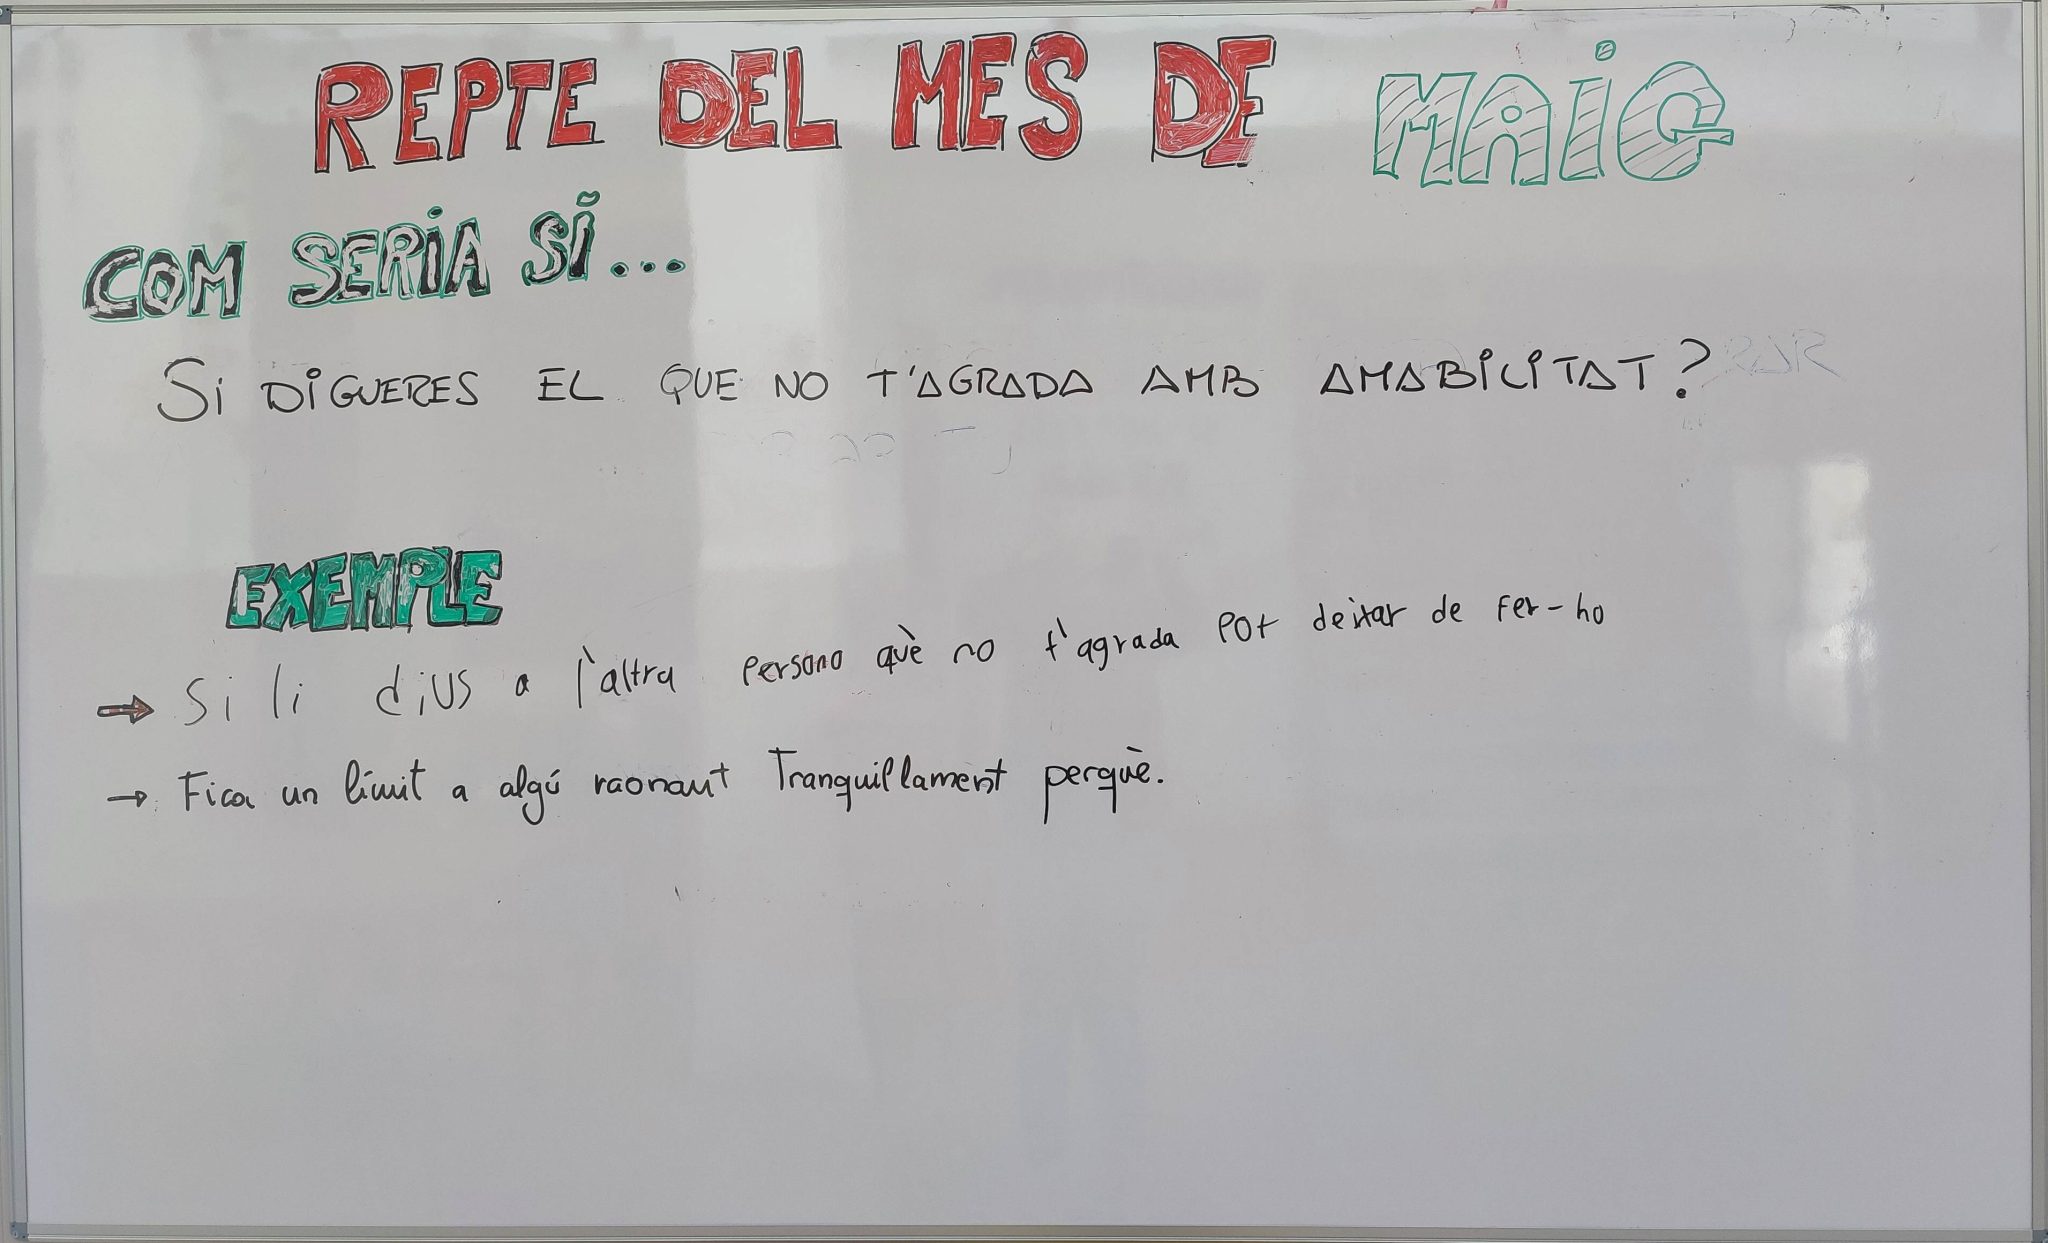 REPTE DEL MES DE MAIG
COM SERIA SI...
SI DIGUERES EL QUE NO T'AGRADA AMB AMABILITAT?
EXEMPLE
→ Si li dius a l'altra persona què no t'agrada pot deixar de fer-ho
→ Fica un límit a algú raonant Tranquillament perquè.